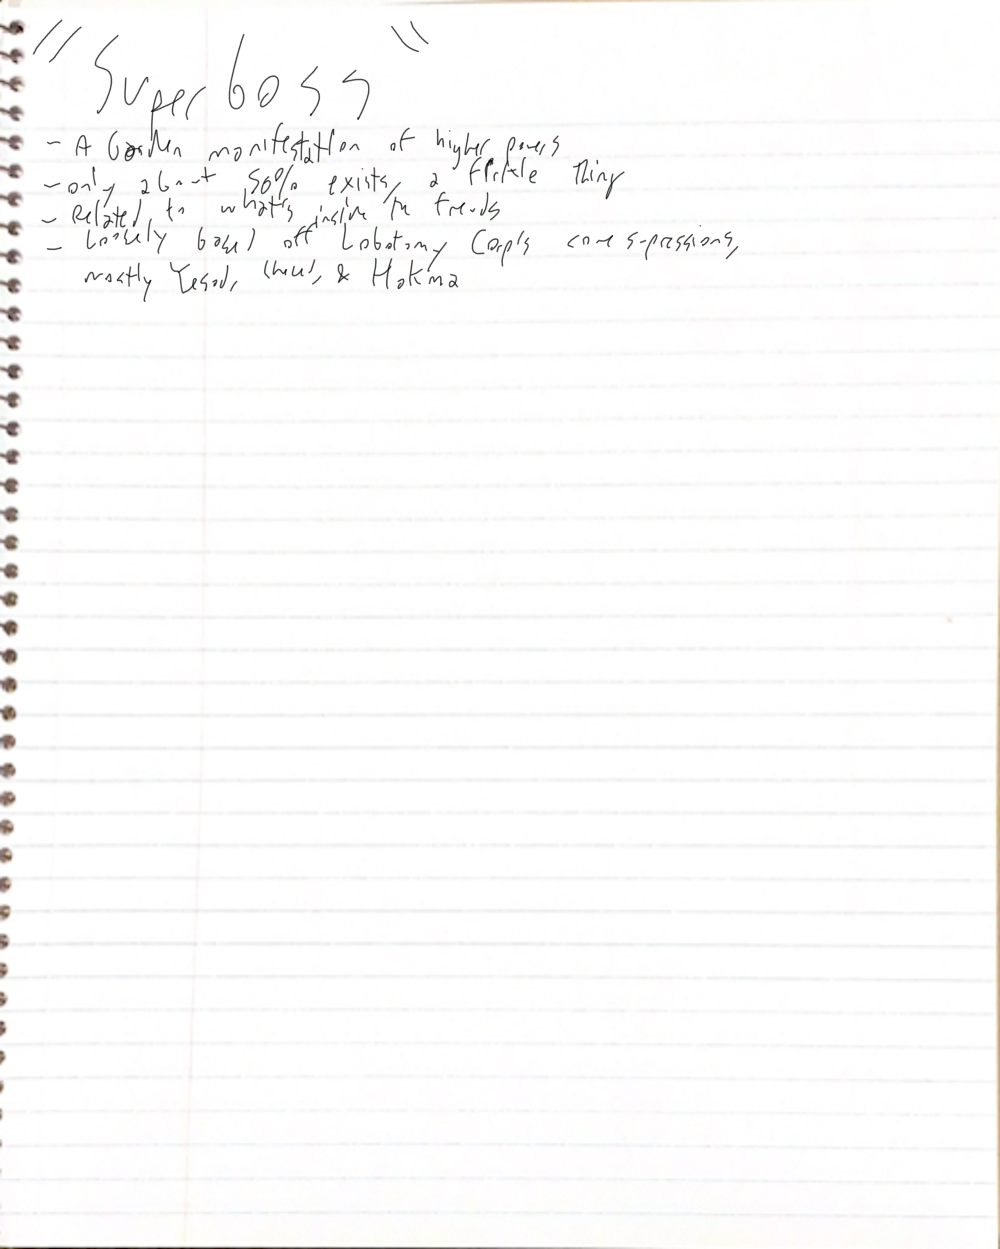 "Superboss"
- A Garden manifestation of higher powers
- only about 50% exists, a fickle thing
- Related to what's inside the
- Loosely based off Lobotomy Corp's core s-pressions,
mostly Yesod, & Hokma